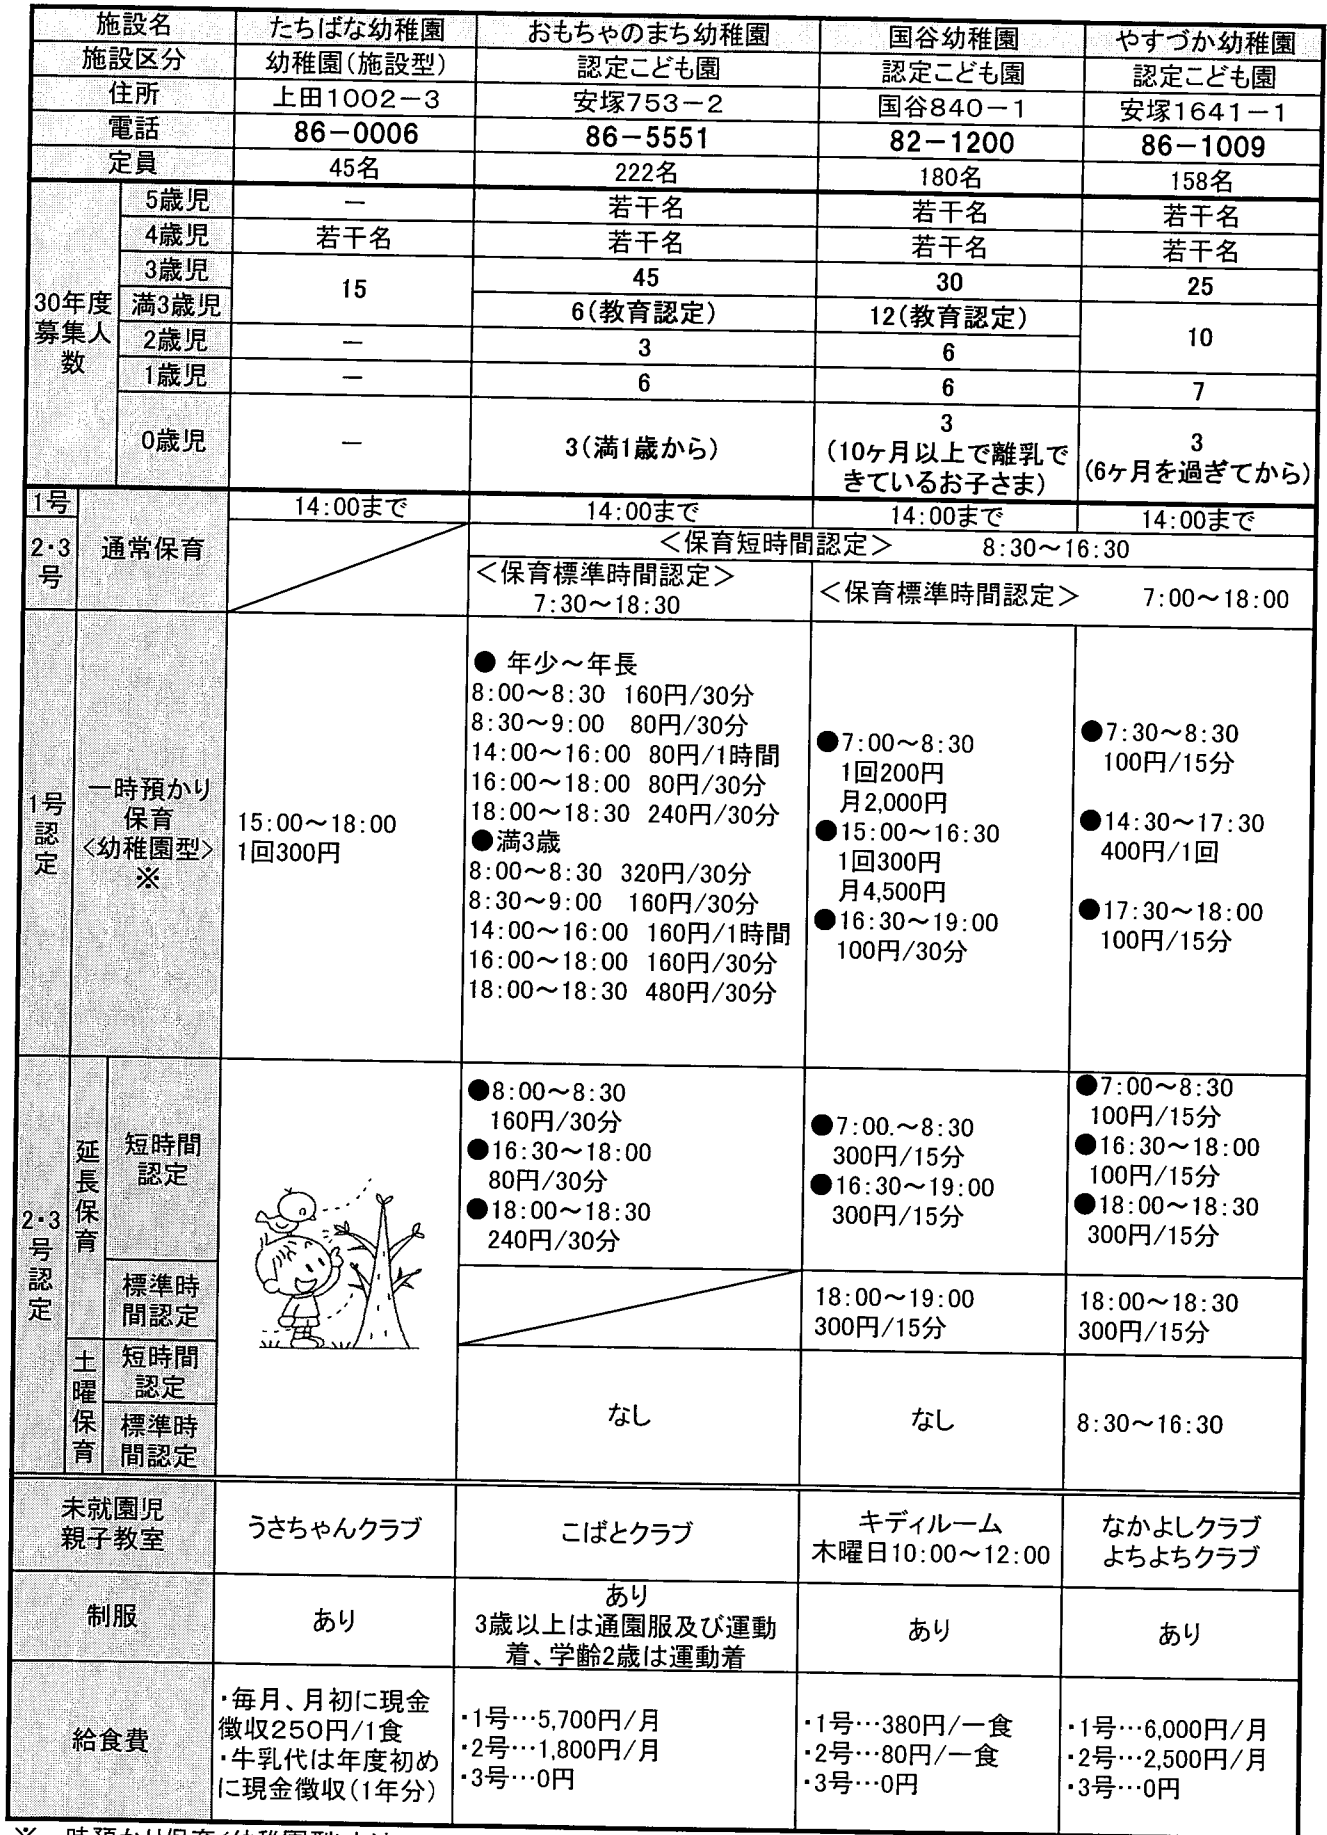 施設名 たちばな幼稚園 おもちゃのまち幼稚園 国谷幼稚園 やすづか幼稚園
施設区分 幼稚園(施設型) 認定こども園 認定こども園 認定こども園
住所 上田1002－3 安塚753－2 国谷840－1 安塚1641－1
電話 86－0006 86－5551 82－1200 86－1009
定員 45名 222名 180名 158名
30年度
募集人
数
5歳児 － 若干名 若干名 若干名
4歳児 若干名 若干名 若干名 若干名
3歳児 15 45 30 25
満3歳児 6(教育認定) 12(教育認定) 10
2歳児 － 3 6
1歳児 － 6 6 7
0歳児 － 3(満1歳から)
3
(10ヶ月以上で離乳で
きているお子さま)
3
(6ヶ月を過ぎてから)
1号 14:00まで 14:00まで 14:00まで 14:00まで
2・3
号
通常保育
＜保育短時間認定＞ 8:30～16:30
＜保育標準時間認定＞
7:30～18:30
＜保育標準時間認定＞ 7:00～18:00
1号
認
定
一時預かり
保育
<幼稚園型>
※
15:00～18:00
1回300円
● 年少～年長
8:00～8:30 160円/30分
8:30～9:00 80円/30分
14:00～16:00 80円/1時間
16:00～18:00 80円/30分
18:00～18:30 240円/30分
●満3歳
8:00～8:30 320円/30分
8:30～9:00 160円/30分
14:00～16:00 160円/1時間
16:00～18:00 160円/30分
18:00～18:30 480円/30分
●7:00～8:30
1回200円
月2,000円
●15:00～16:30
1回300円
月4,500円
●16:30～19:00
100円/30分
●7:30～8:30
100円/15分
●14:30～17:30
400円/1回
●17:30～18:00
100円/15分
2・3
号
認
定
延
長
保
育
短時間
認定
●8:00～8:30
160円/30分
●16:30～18:00
80円/30分
●18:00～18:30
240円/30分
●7:00.～8:30
300円/15分
●16:30～19:00
300円/15分
●7:00～8:30
100円/15分
●16:30～18:00
100円/15分
●18:00～18:30
300円/15分
標準時
間認定
18:00～19:00
300円/15分
18:00～18:30
300円/15分
土
曜
保
育
短時間
認定
標準時
間認定
なし なし 8:30～16:30
未就園児
親子教室
うさちゃんクラブ
こばとクラブ
キディルーム
木曜日10:00～12:00
なかよしクラブ
よちよちクラブ
制服
あり
あり
3歳以上は通園服及び運動
着、学齢2歳は運動着
あり
あり
給食費
・毎月、月初に現金
徴収250円/1食
・牛乳代は年度初め
に現金徴収(1年分)
・1号…5,700円/月
・2号…1,800円/月
・3号…0円
・1号…380円/一食
・2号…80円/一食
・3号…0円
・1号…6,000円/月
・2号…2,500円/月
・3号…0円